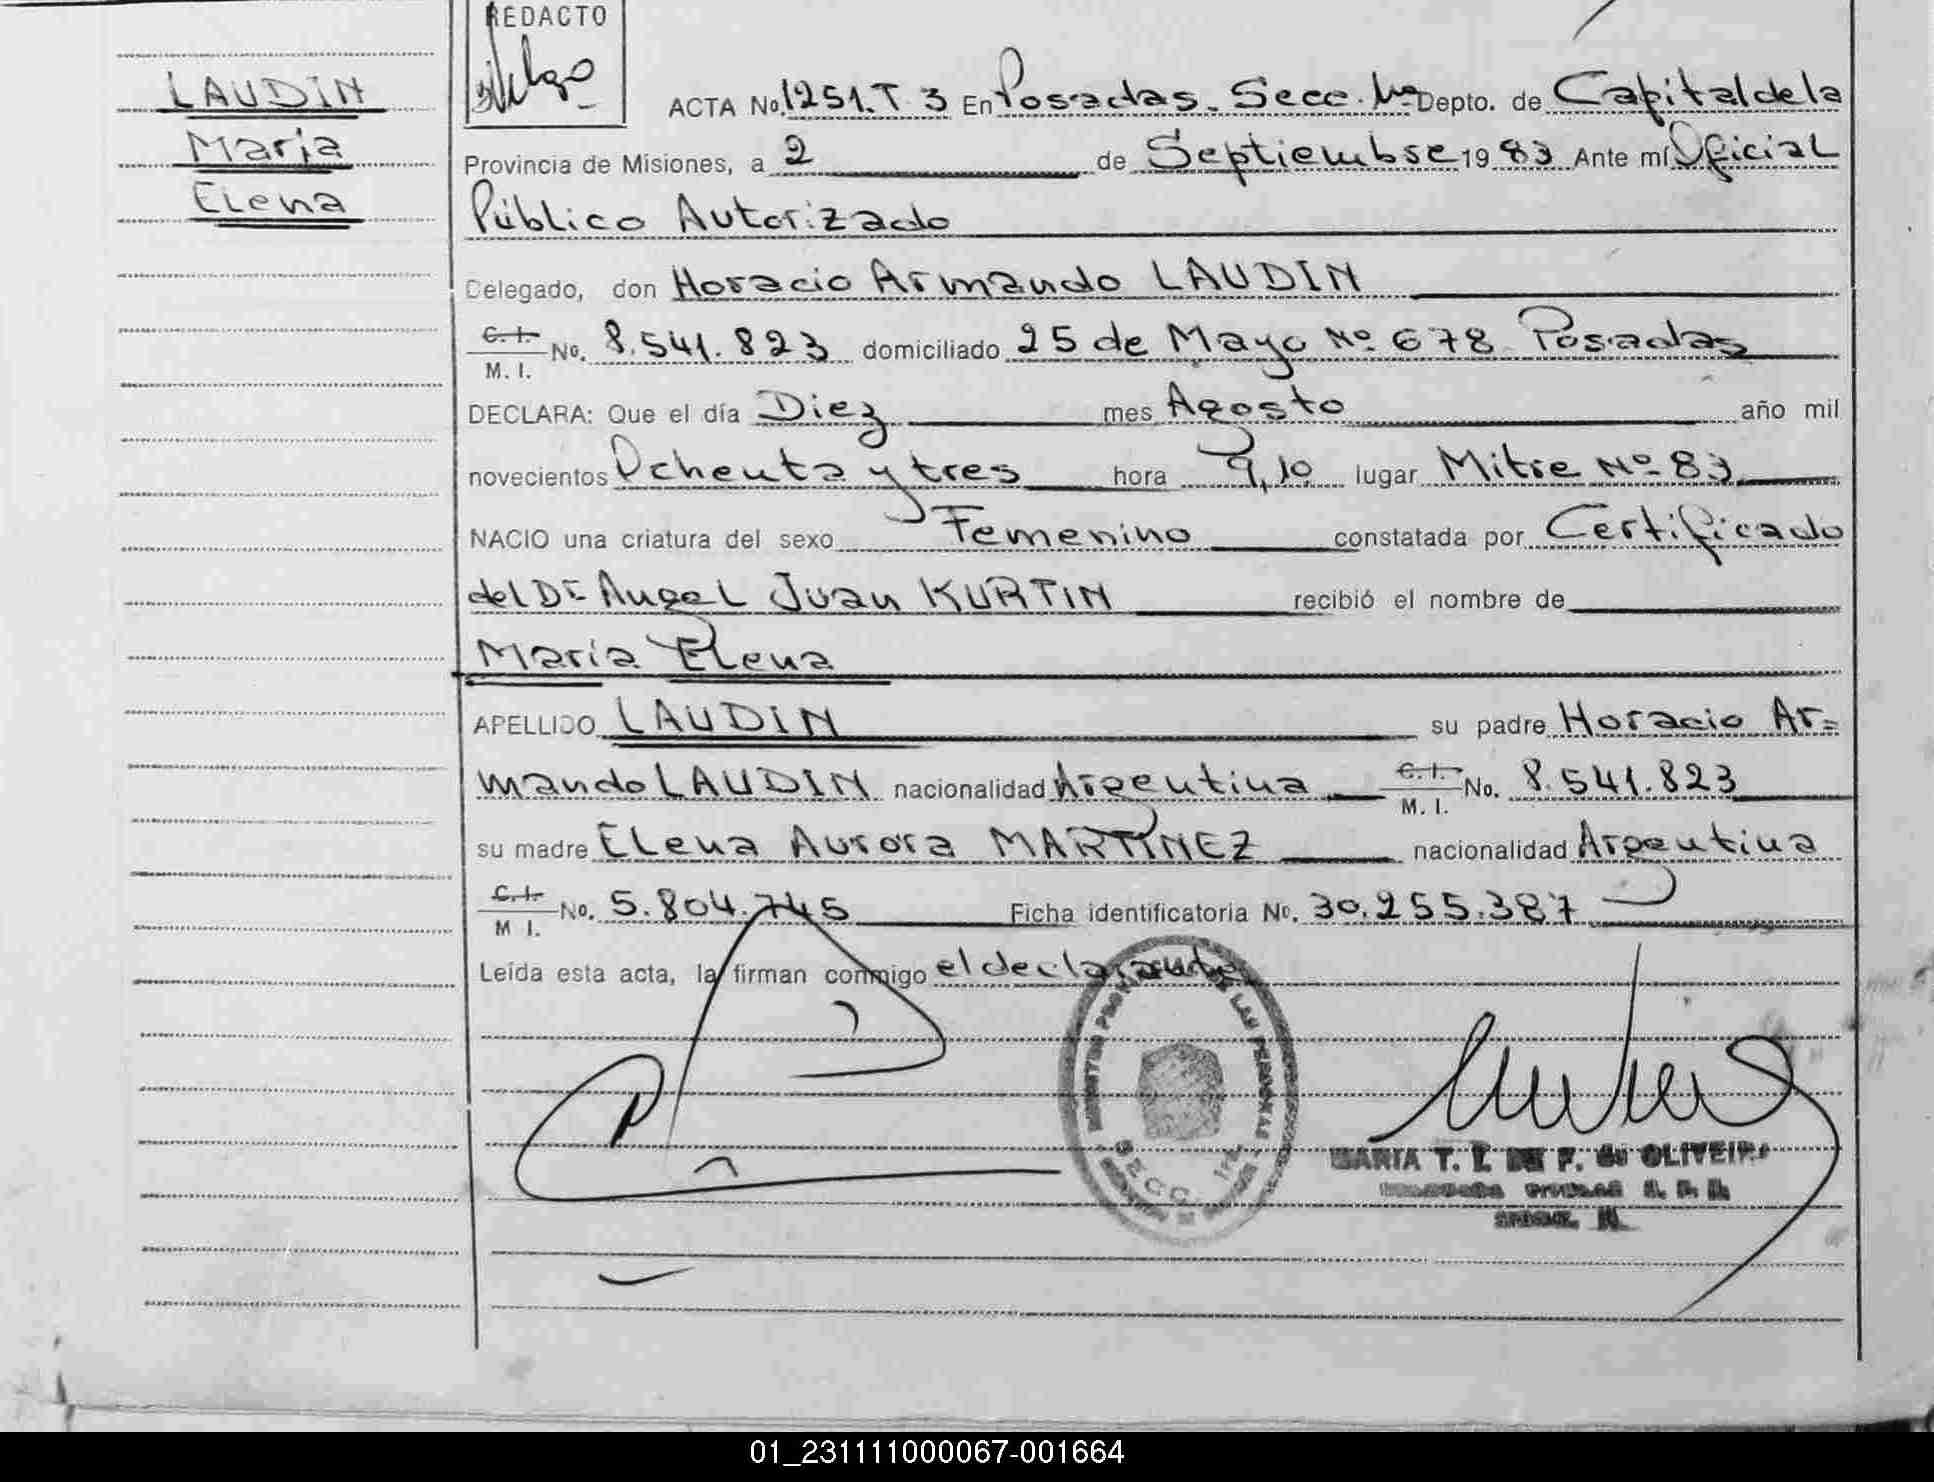 REDACTO
LAUDIN
Maria
Elena
ACTA No. 1251. T 3 En Posadas. Secc. 1ra Depto. de Capital de la
Provincia de Misiones, a 2 de Septiembre 19 83 Ante mí Oficial
Público Autorizado
Delegado, don Horacio Armando LAUDIN
C. I.
M. I. No. 8.541.823 domiciliado 25 de Mayo Nº 678 Posadas
DECLARA: Que el día Diez mes Agosto año mil
novecientos Ochenta y tres hora 9,10 lugar Mitre Nº 83
NACIO una criatura del sexo Femenino constatada por Certificado
del Dr Angel Juan KURTIN recibió el nombre de
María Elena
APELLIDO LAUDIN su padre Horacio Ar=
mando LAUDIN nacionalidad Argentina C. I.
M. I. No. 8.541.823
su madre Elena Aurora MARTINEZ nacionalidad Argentina
C. I.
M I. No. 5.804.745 Ficha identificatoria No. 30.255.387
Leída esta acta, la firman conmigo el declarante
SECC. 1ra
MARIA T. DE F. de OLIVEIRA
01_231111000067-001664